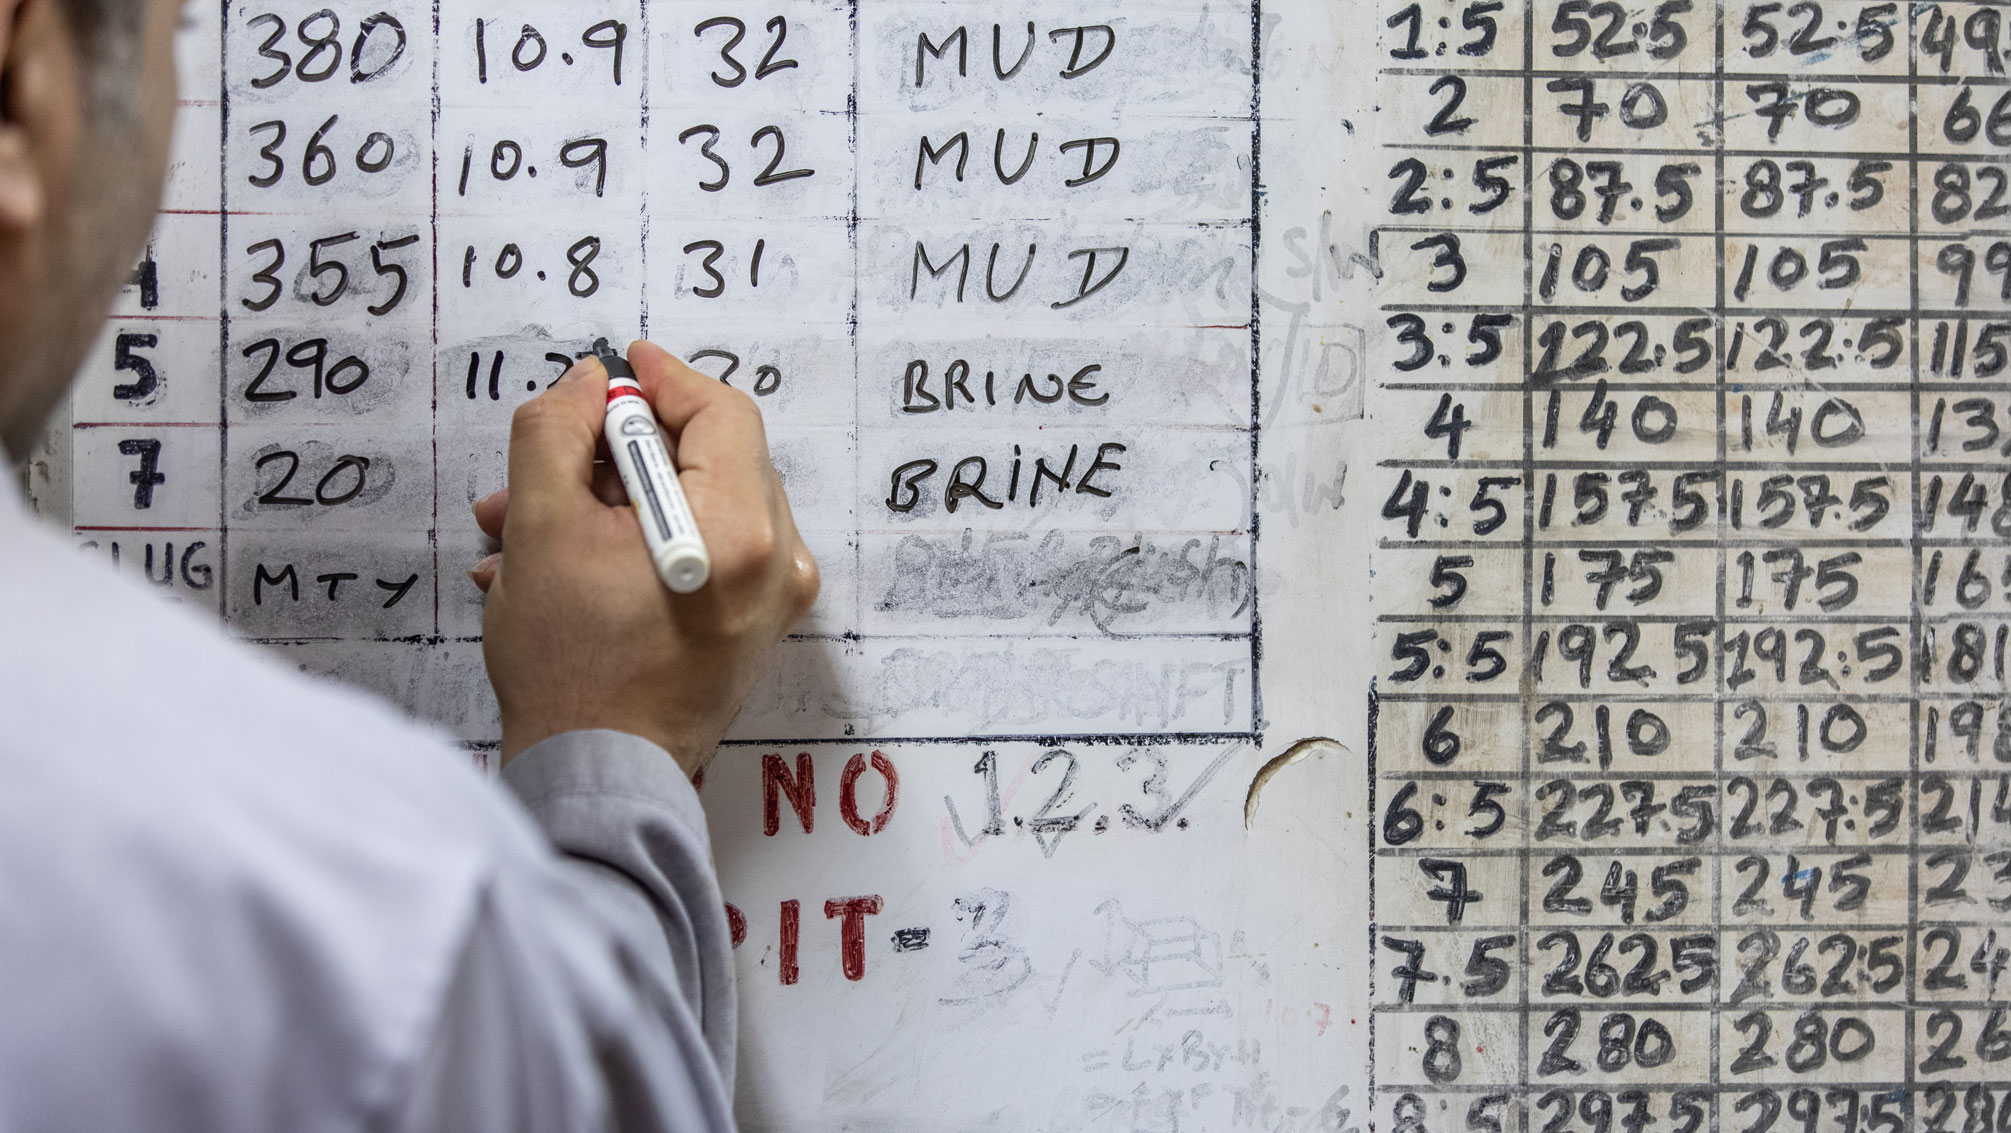 380 10.9 32 MUD
360 10.9 32 MUD
4 355 10.8 31 MUD
5 290 11.2 30 BRINE
7 20 BRINE
SLUG MTY
NO 1.2.3.
PIT = 3
= LxBxH
10.7
S/W
1:5 52.5 52.5 49
2 70 70 66
2:5 87.5 87.5 82
3 105 105 99
3:5 122.5 122.5 115
4 140 140 13
4:5 157.5 157.5 148
5 175 175 165
5:5 192.5 192:5 181
6 210 210 198
6:5 227.5 227.5 214
7 245 245 23
7.5 262.5 262.5 24
8 280 280 26
8:5 297.5 297.5 280